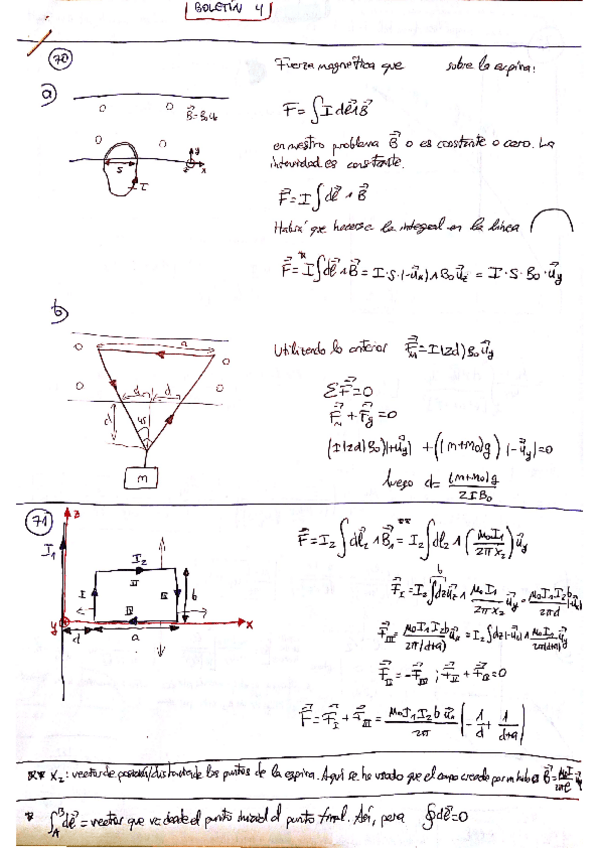 BOLETÍN 4
70
Fuerza magnética que sobre la espira:
a)
B=B₀u
F = ∫ I dl∧B
en nuestro problema B o es constante o cero. La
intensidad es constante.
F = I ∫ dl ∧ B
Habrá que hacerse la integral en la línea
F = I ∫ dl∧B = I·S·(-uₓ)∧B₀u_z = I·S·B₀·u_y
S
I
y
x
b)
Utilizando lo anterior F_M = I(2d)B₀u_y
ΣF = 0
F_M + F_g = 0
(I(2d)B₀)(+u_y) + ((m+m₀)g)(-u_y) = 0
luego d = (m+m₀)g / 2IB₀
d
d
45
m
71
z
I₁
I₂
I
II
III
b
y
d
a
x
F = I₂ ∫ dl₂ ∧ B₁ =** I₂ ∫ dl₂ ∧ (μ₀I₁ / 2πx₂) u_y
F_I = I₂ ∫ dz u_z ∧ μ₀I₁ / 2πx₂ u_y = μ₀I₁I₂b / 2πd
F_III = μ₀I₁I₂b / 2π(d+a) uₓ = I₂ ∫ dz(-u_z) ∧ μ₀I₁ / 2π(d+a) u_y
F_II = -F_IV ; F_II + F_IV = 0
F = F_I + F_III = μ₀I₁I₂b uₓ / 2π (-1/d + 1/(d+a))
** x₂: vector de posición/distancia de los puntos de la espira. Aquí se ha usado que el campo creado por un hilo es B = μ₀I / 2πr
* ∫_A^B dl = vector que va desde el punto inicial al punto final. Así, para ∮dl=0